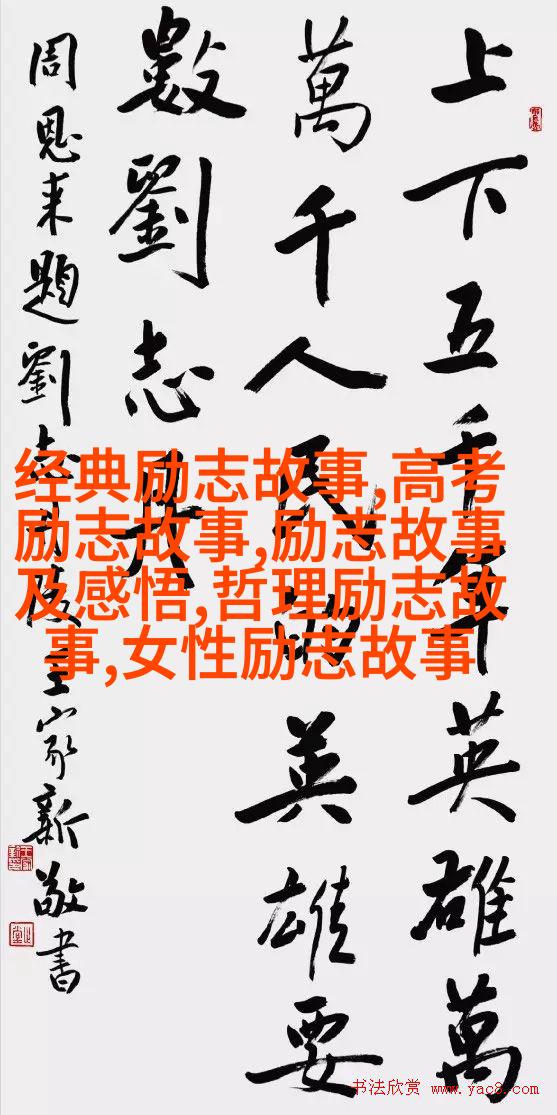 上下五千年英雄萬
萬千人民的英雄要
數劉志丹
周恩来題劉志丹陵王家新敬書
经典励志故事,高考
励志故事,励志故事
及感悟,哲理励志故
事,女性励志故事
书法欣赏 www.yac8.com